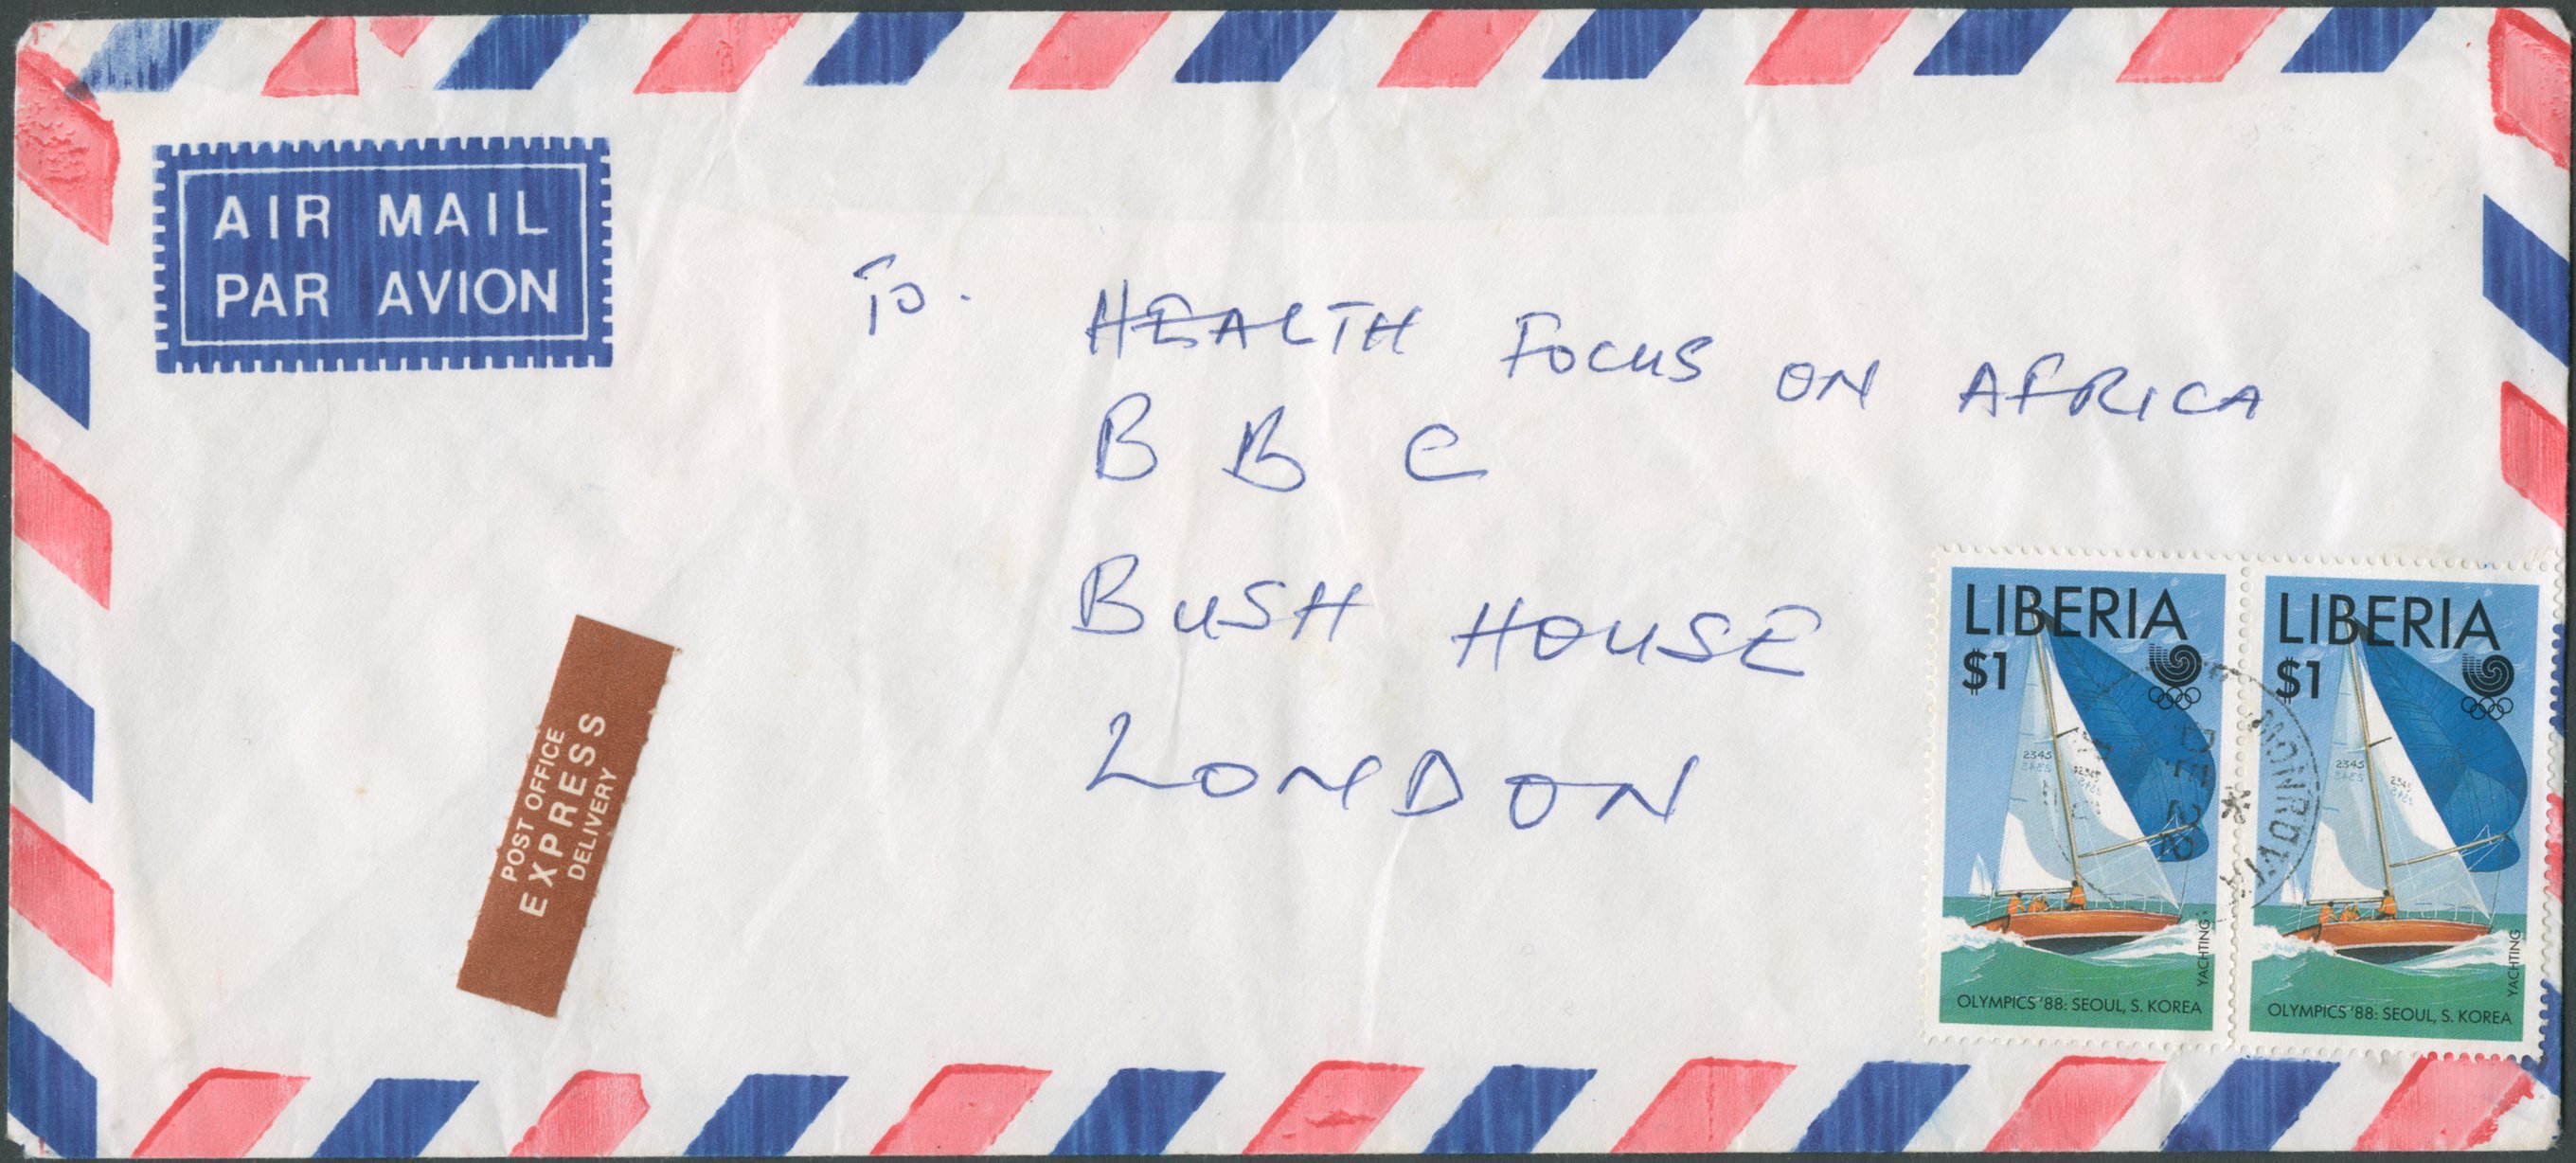 AIR MAIL
PAR AVION
To.
HEALTH FOCUS ON AFRICA
B B C
BUSH HOUSE
LONDON
POST OFFICE
EXPRESS
DELIVERY
LIBERIA
$1
2345
2345
YACHTING
OLYMPICS '88: SEOUL, S. KOREA
LIBERIA
$1
2345
2345
YACHTING
OLYMPICS '88: SEOUL, S. KOREA
MONROVIA